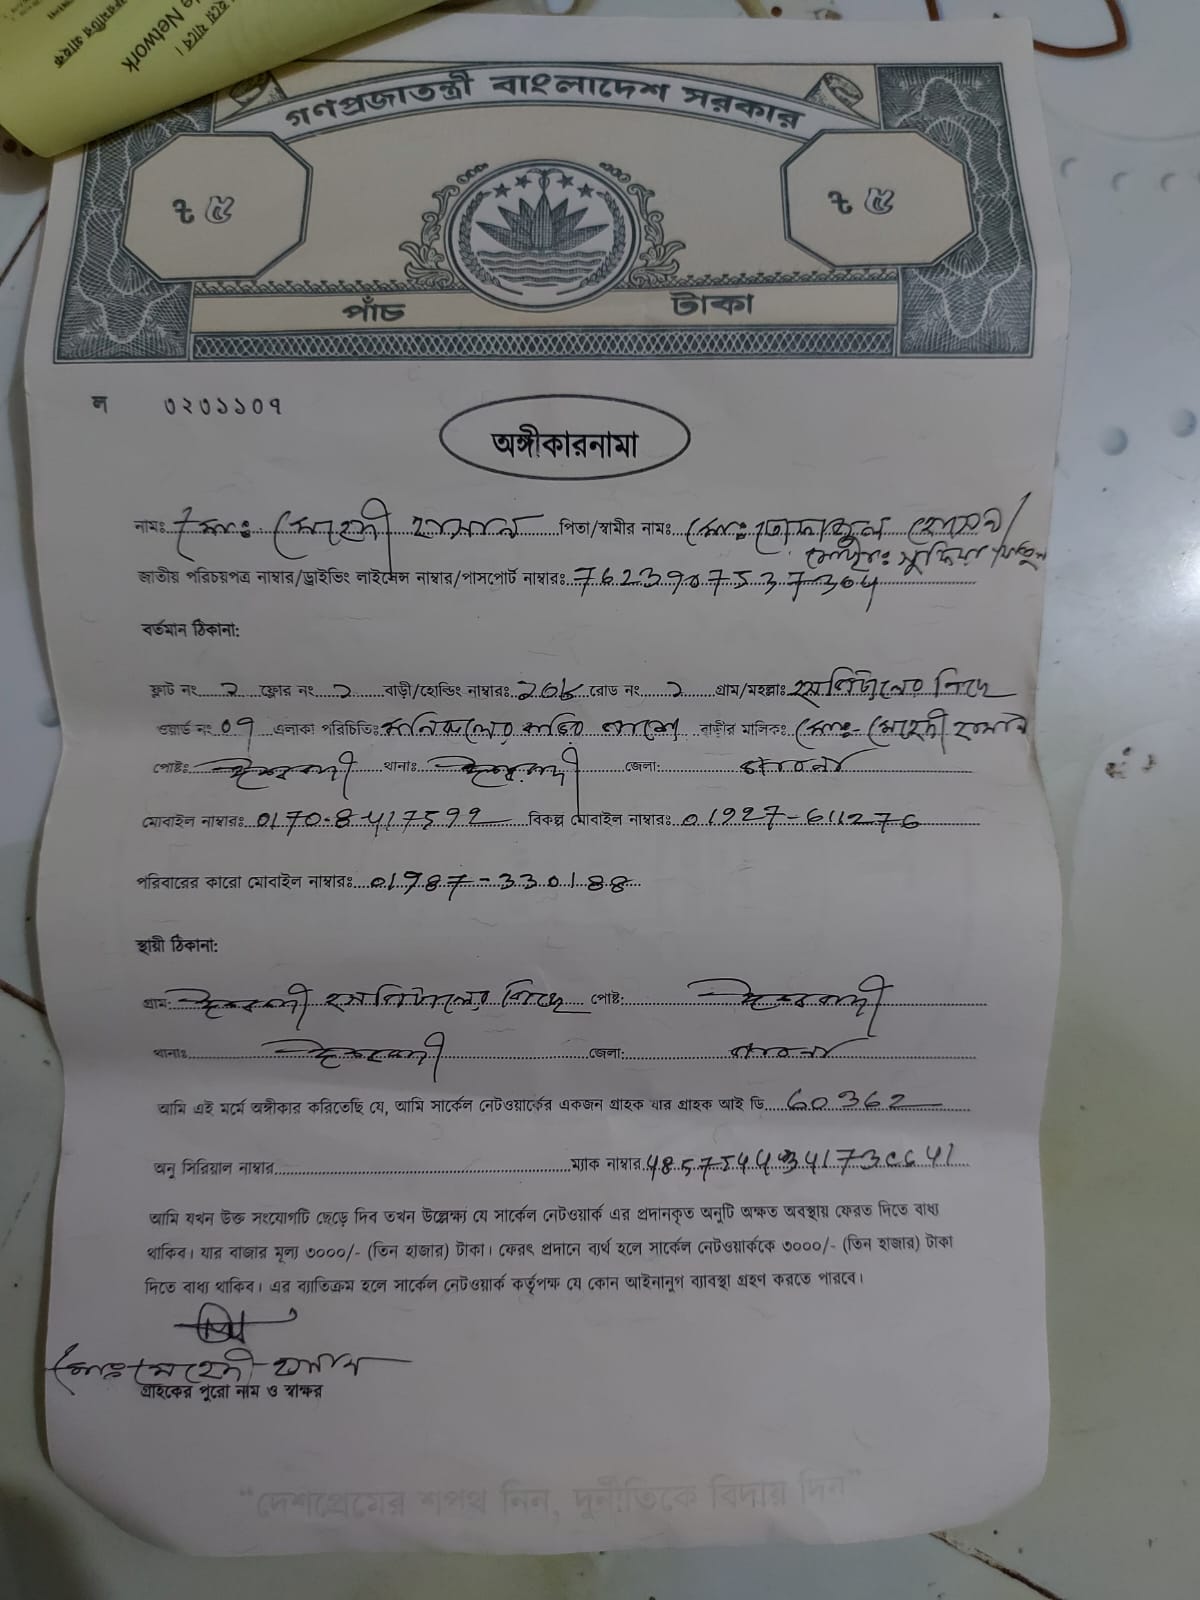 হয়ে যাবে।
Network
গণপ্রজাতন্ত্রী বাংলাদেশ সরকার
৳ ৫ ৳ ৫
পাঁচ টাকা
ল ৩২৩১১০৭
অঙ্গীকারনামা
নামঃ মোঃ মেহেদী হাসান পিতা/স্বামীর নামঃ মোঃ তোফাজ্জল হোসেন/
জাতীয় পরিচয়পত্র নাম্বার/ড্রাইভিং লাইসেন্স নাম্বার/পাসপোর্ট নাম্বারঃ 7623907537304
বর্তমান ঠিকানা:
ফ্লাট নং ২ ফ্লোর নং ১ বাড়ী/হোল্ডিং নাম্বারঃ রোড নং ১ গ্রাম/মহল্লাঃ হসপিটালের পিছে
ওয়ার্ড নং 07 এলাকা পরিচিতিঃ বাড়ির পাশে বাড়ীর মালিকঃ মোঃ মেহেদী হাসান
পোষ্টঃ ঈশ্বরদী থানাঃ ঈশ্বরদী জেলা: পাবনা
মোবাইল নাম্বারঃ 0170-8417592 বিকল্প মোবাইল নাম্বারঃ 01927-611276
পরিবারের কারো মোবাইল নাম্বারঃ 01787-330188
স্থায়ী ঠিকানা:
গ্রাম: ঈশ্বরদী হসপিটালের পিছে পোষ্ট: ঈশ্বরদী
থানাঃ ঈশ্বরদী জেলা: পাবনা
আমি এই মর্মে অঙ্গীকার করিতেছি যে, আমি সার্কেল নেটওয়ার্কের একজন গ্রাহক যার গ্রাহক আই ডি 60362
অনু সিরিয়াল নাম্বার ম্যাক নাম্বার
আমি যখন উক্ত সংযোগটি ছেড়ে দিব তখন উল্লেক্ষ্য যে সার্কেল নেটওয়ার্ক এর প্রদানকৃত অনুটি অক্ষত অবস্থায় ফেরত দিতে বাধ্য
থাকিব। যার বাজার মূল্য ৩০০০/- (তিন হাজার) টাকা। ফেরৎ প্রদানে ব্যর্থ হলে সার্কেল নেটওয়ার্ককে ৩০০০/- (তিন হাজার) টাকা
দিতে বাধ্য থাকিব। এর ব্যাতিক্রম হলে সার্কেল নেটওয়ার্ক কর্তৃপক্ষ যে কোন আইনানুগ ব্যাবস্থা গ্রহণ করতে পারবে।
মোঃ মেহেদী হাসান
গ্রাহকের পুরো নাম ও স্বাক্ষর
"দেশপ্রেমের শপথ নিন, দুর্নীতিকে বিদায় দিন"